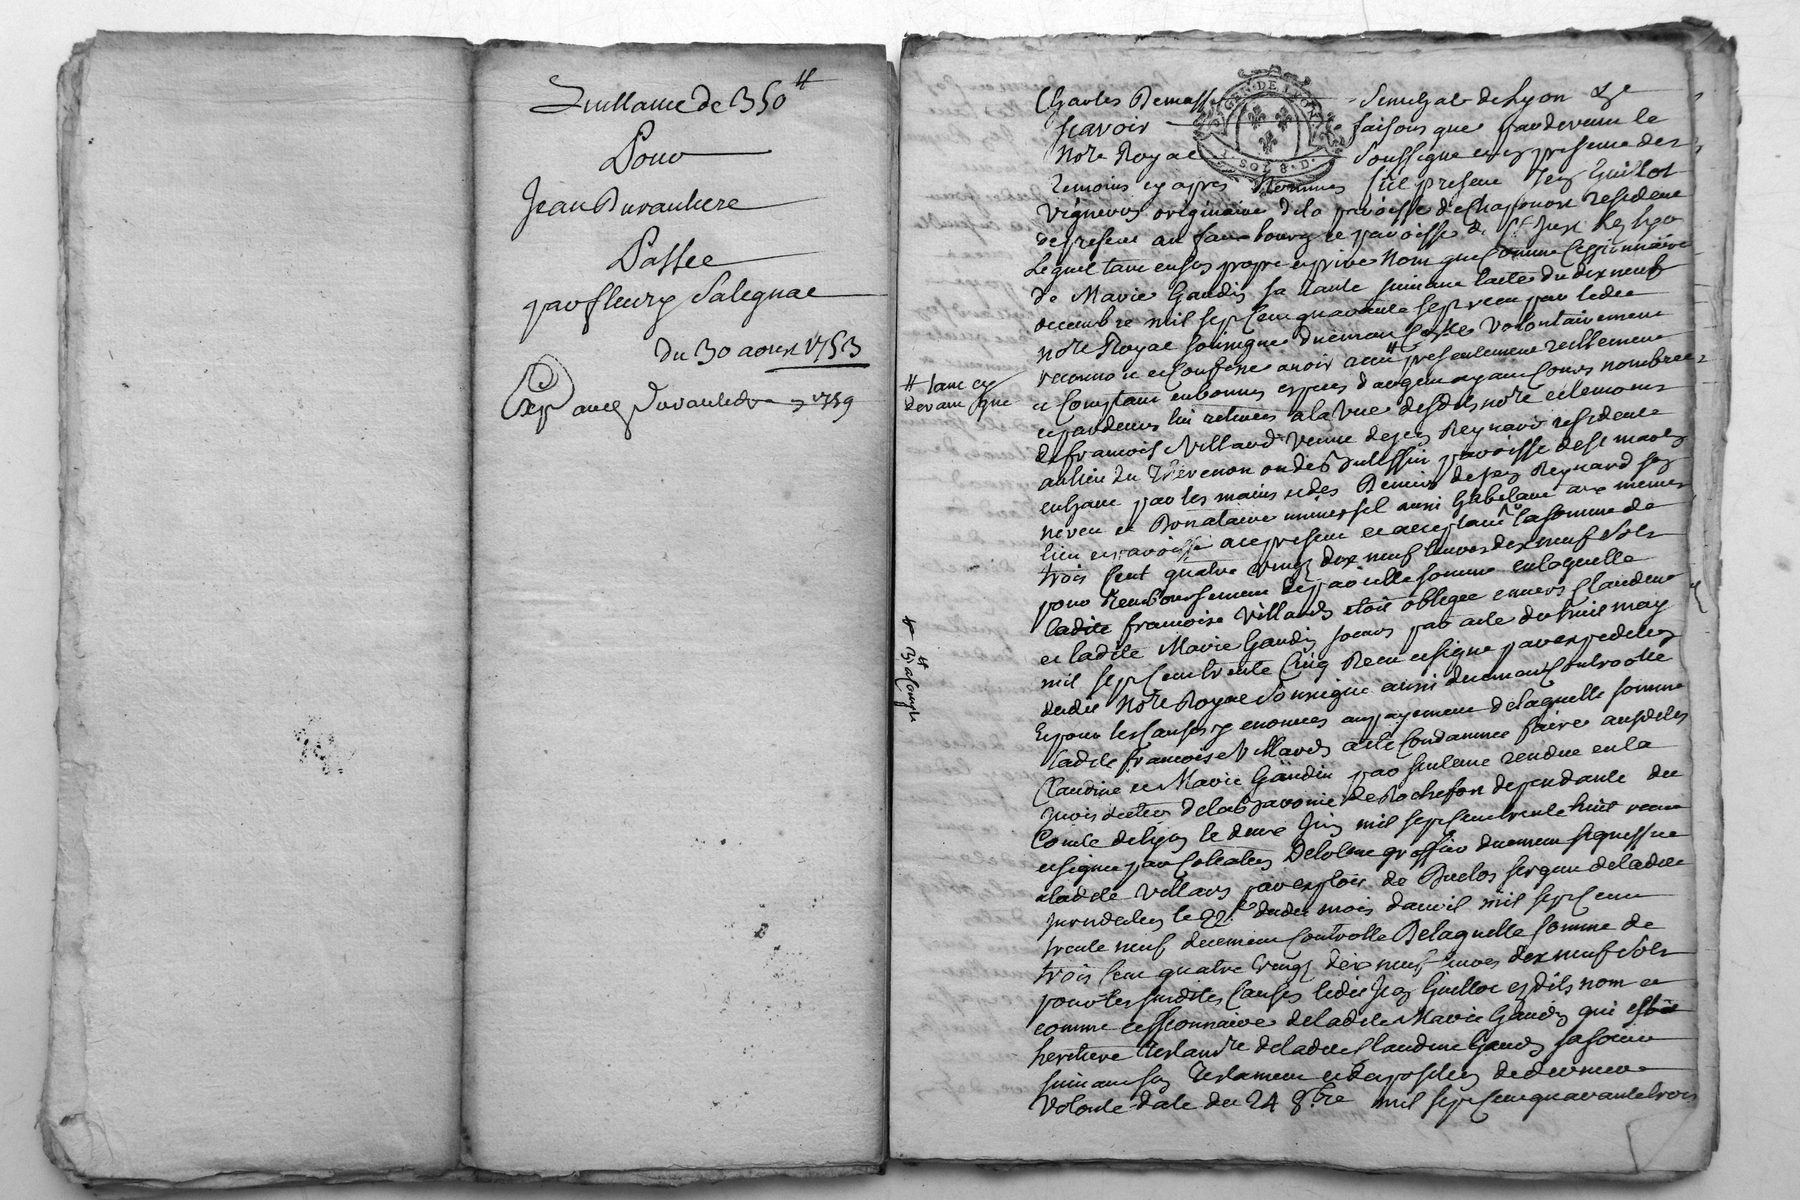 Quittance de 350 ₶
Pour
Jean Duvauliere
Passée
par fleury Salegnac
du 30 aoust 1753
Exp
1759
GEN. DE LYON
SOLS. D.
Charles Demasse Senechal de Lyon &c
scavoir faisons que pardevant le
Notre Royal soussigne et en presence des
temoins cy apres Nommes fut present Jean Guillot
Vigneron originaire de la paroisse de Chaponost resident
de present au faux bourg et paroisse de St Just Lez Lyon
Lequel tant en son propre et prive Nom que comme cessionnaire
de Marie Gaudin sa tante suivant lacte du dix neuf
decembre mil sept cent quarante sept receu par ledit
notre Royal soussigne duement Controlle volontairement
reconnoit et Confesse avoir receu # presentement reellement
# tant cy
devant que
et Comptant en bonnes especes dargent ayant Cours nombrees
et par devers lui retirees a la vue desdits notre et temoins
de francoise Villard veuve de Jean Reynard residente
au lieu du Thevenon paroisse de St martin
en haut par les mains et des Deniers de Jean Reynard son
neveu et Donataire universel aussi habitant aux memes
lieu et paroisse a ce present et acceptant la somme de
trois Cent quatre vingt dix neuf livres dix neuf Sols
pour Remboursement de pareille somme en laquelle
ladite francoise Villard etoit obligee envers Claudine
et ladite Marie Gaudin soeurs par acte du huit may
mil sept cent trente Cinq Receu et signe par expedition
dudit Notre Royal Soussigne aussi duement Controlle
Et pour les Causes y enoncees au payement de laquelle somme
ladite francoise Villard a ete Condamnee faire ausdites
Claudine et Marie Gaudin par sentence rendue en la
Jurisdiction de la Baronnie de Rochefort dependante du
Comte de Lyon le deux Juin mil sept cent trente huit
et signee par greffier duement signiffiee
a ladite Villard par exploit de Duclos sergent de ladite
Jurisdiction le 22e dudit mois davril mil sept cent
trente neuf duement Controlle De laquelle somme de
trois Cent quatre vingt dix neuf livres dix neuf Sols
pour les susdites Causes ledit Jean Guillot esdits nom et
comme cessionnaire de ladite Marie Gaudin qui etoit
heritiere Testamre de ladite Claudine Gaudin sa soeur
suivant son Testament et Disposition de derniere
Volonte date du 24 8bre mil sept cent quarante trois